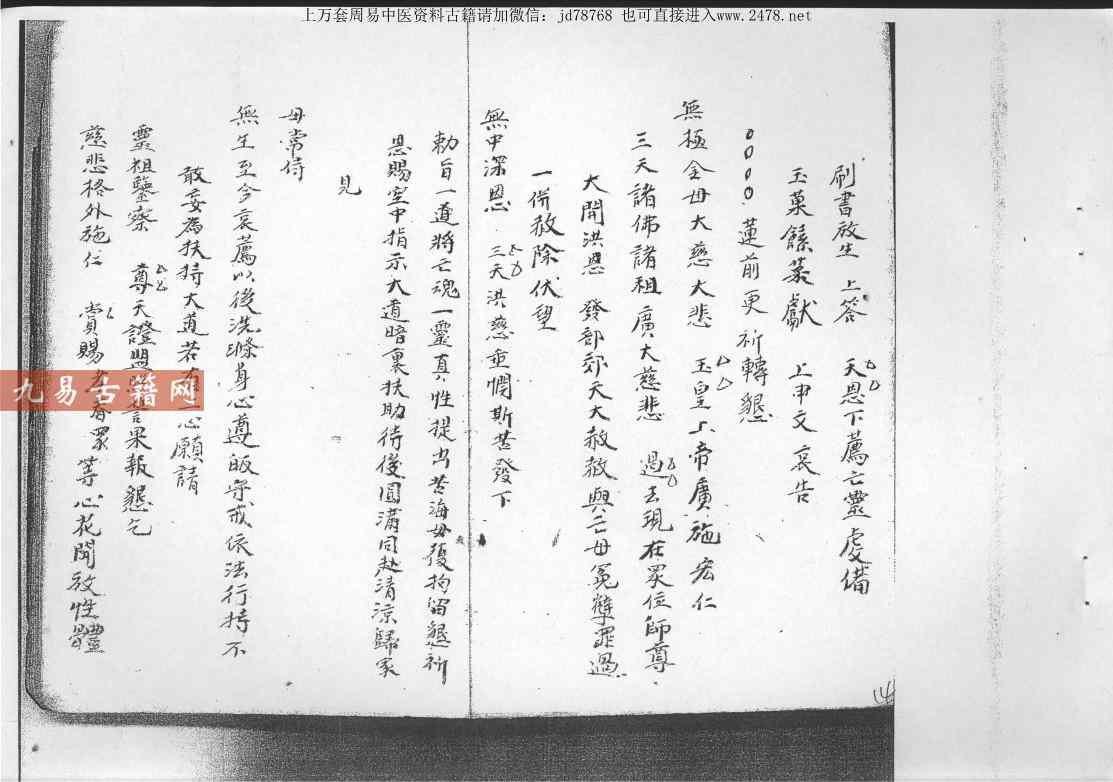 上万套周易中医资料古籍请加微信：jd78768 也可直接进入www.2478.net
刷書放生 上答 天恩下薦亡靈虔備
玉菓餚菜獻 上申文哀告
○○○○蓮前更祈轉懇
無極金母大慈大悲 玉皇上帝廣施宏仁
三天諸佛諸祖廣大慈悲 過去現在眾位師尊
大開洪恩 發部郊天大赦赦與亡母冤孽罪過
一併赦除伏望
無中深恩 三天洪慈垂憫斯苦發下
勅旨一道將亡魂一靈真性提出苦海毋復拘留懇祈
恩賜空中指示大道暗裏扶助待後圓滿同赴清涼歸家
見
母常侍
無生至今哀薦以後洗滌身心遵皈守戒依法行持不
敢妄為扶持大道若 心願請
靈祖鑒察 尊天證盟 果報懇乞
慈悲格外施仁 賞賜 眾等心花開放性體
九易古籍网
14